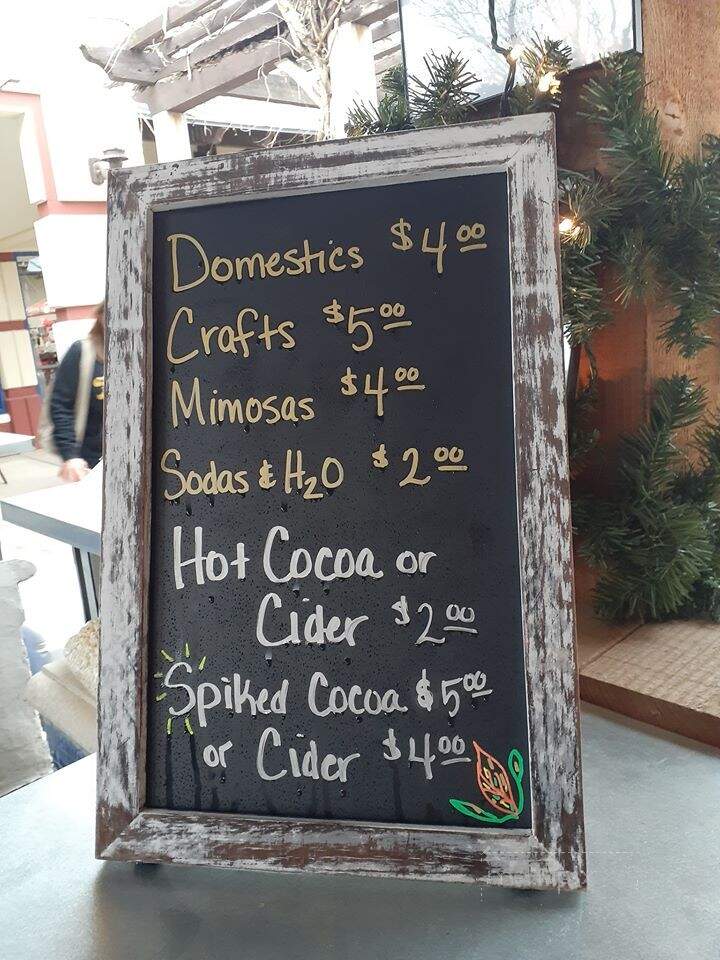 Domestics $4.00
Crafts $5.00
Mimosas $4.00
Sodas & H₂O $2.00
Hot Cocoa or
Cider $2.00
Spiked Cocoa $5.00
or Cider $4.00